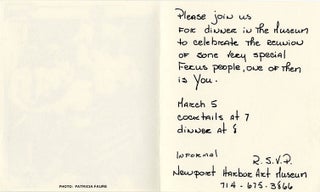 Please join us
for dinner in the Museum
to celebrate the reunion
of some very special
Ferus people, one of them
is You.
March 5
cocktails at 7
dinner at 8
Informal
R.S.V.P.
Newport Harbor Art Museum
714-675-3866
PHOTO: PATRICIA FAURE